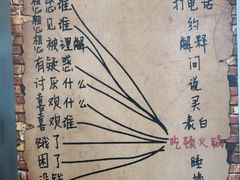 想见谁
想被理解
有疑惑
讨厌什么
喜欢什么
喜欢谁
饿了
困了
没钱
打电话
约
解释
问
说
买
表白
吃顿火锅
睡